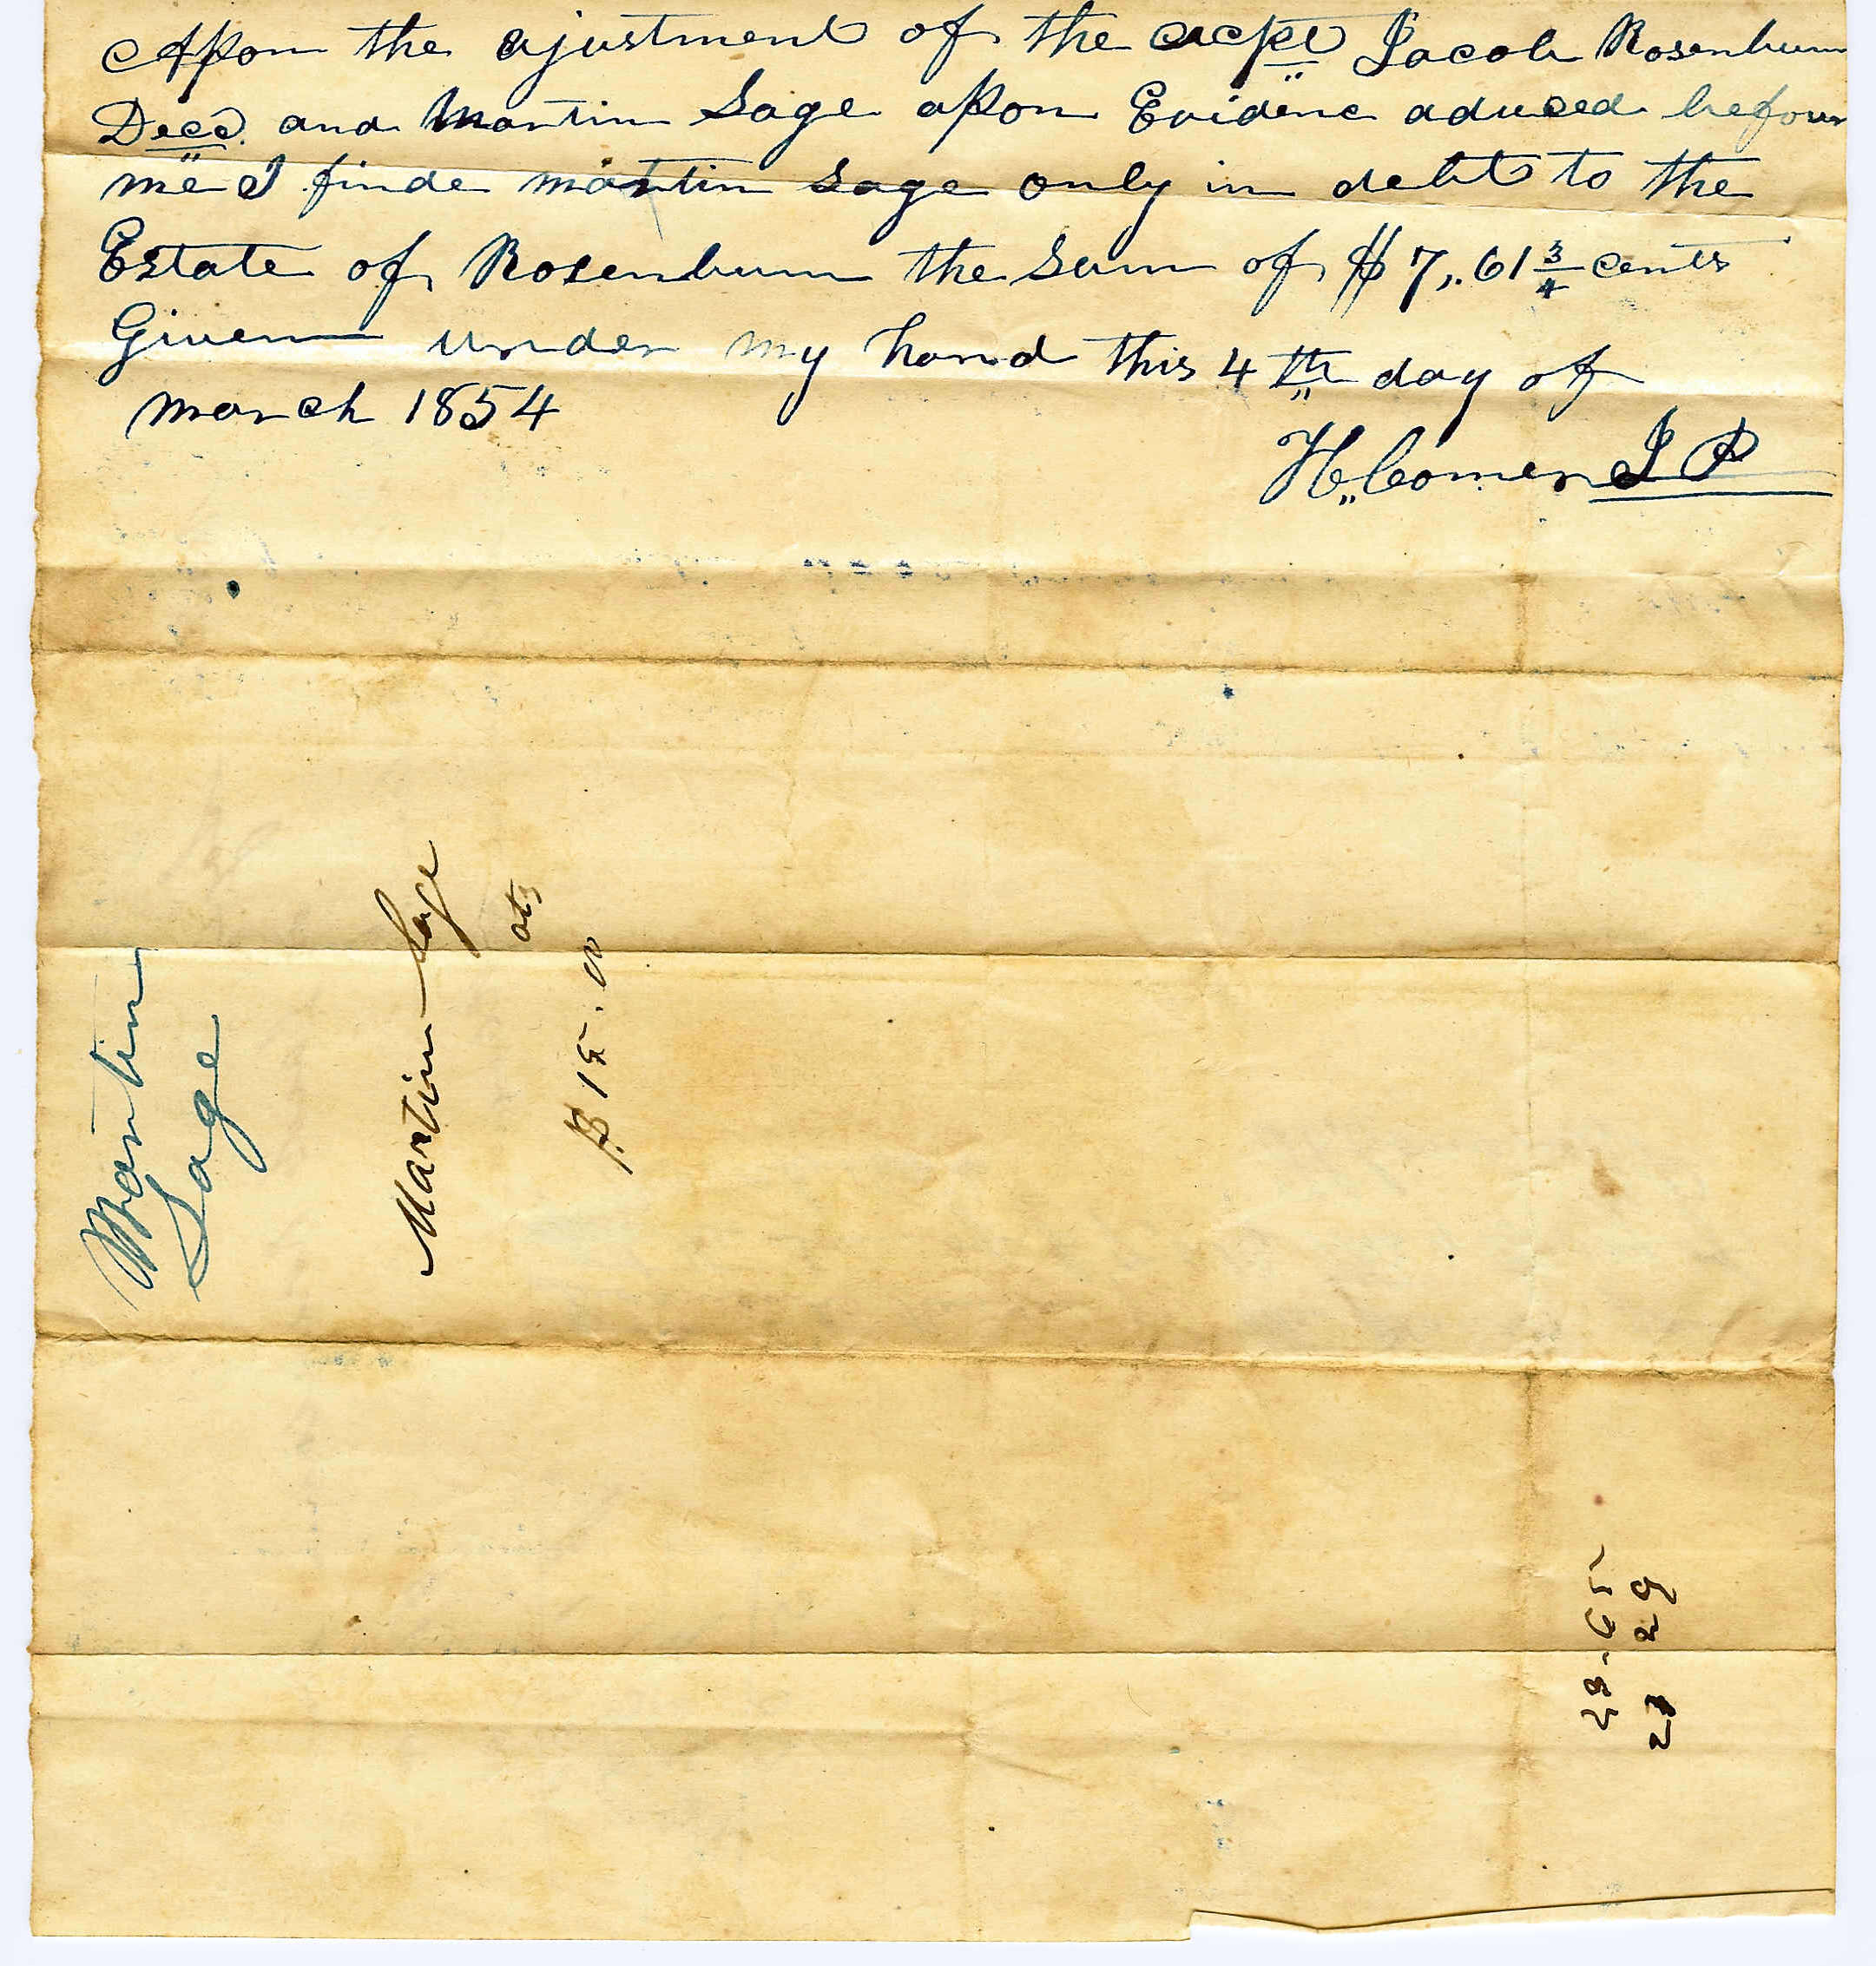 Apon the ajustment of the acpt Jacob Rosenbum
Decd. and Martin Sage apon Evidenc aduced before
me I finde martin Sage only in debt to the
Estate of Rosenbum the Sum of $ 7,.61 3/4 cents
Given under my hand this 4th day of
march 1854
H,, Comer J P
Martin
Sage
Martin Sage
$ 15.00
28-65
21 29